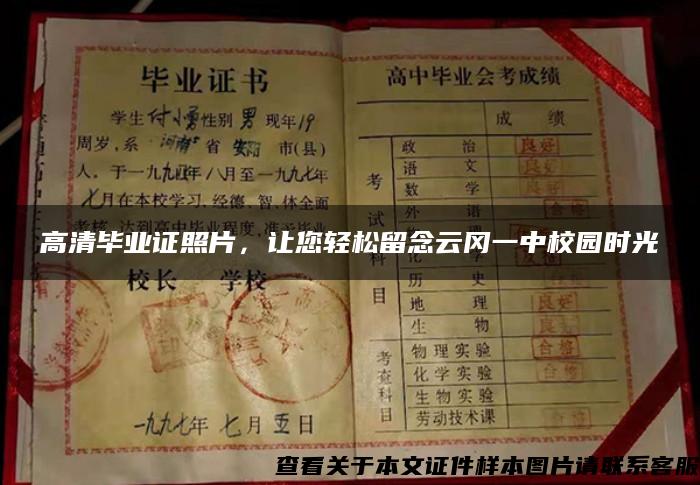 毕业证书
学生付小勇性别男现年19
周岁,系河南省安阳市(县)
人。于一九九四年八月至一九九七年
七月在本校学习,经德、智、体全面
高清毕业证照片，让您轻松留念云冈一中校园时光
校长 学校
一九九七年七月五日
高中毕业会考成绩
成绩
考试科目
政治 良好
语文 良好
数学 良好
外语 合格
历史 良好
地理 良好
生物 良好
考查科目
物理实验 合格
化学实验 合格
生物实验
劳动技术课 合格
查看关于本文证件样本图片请联系客服